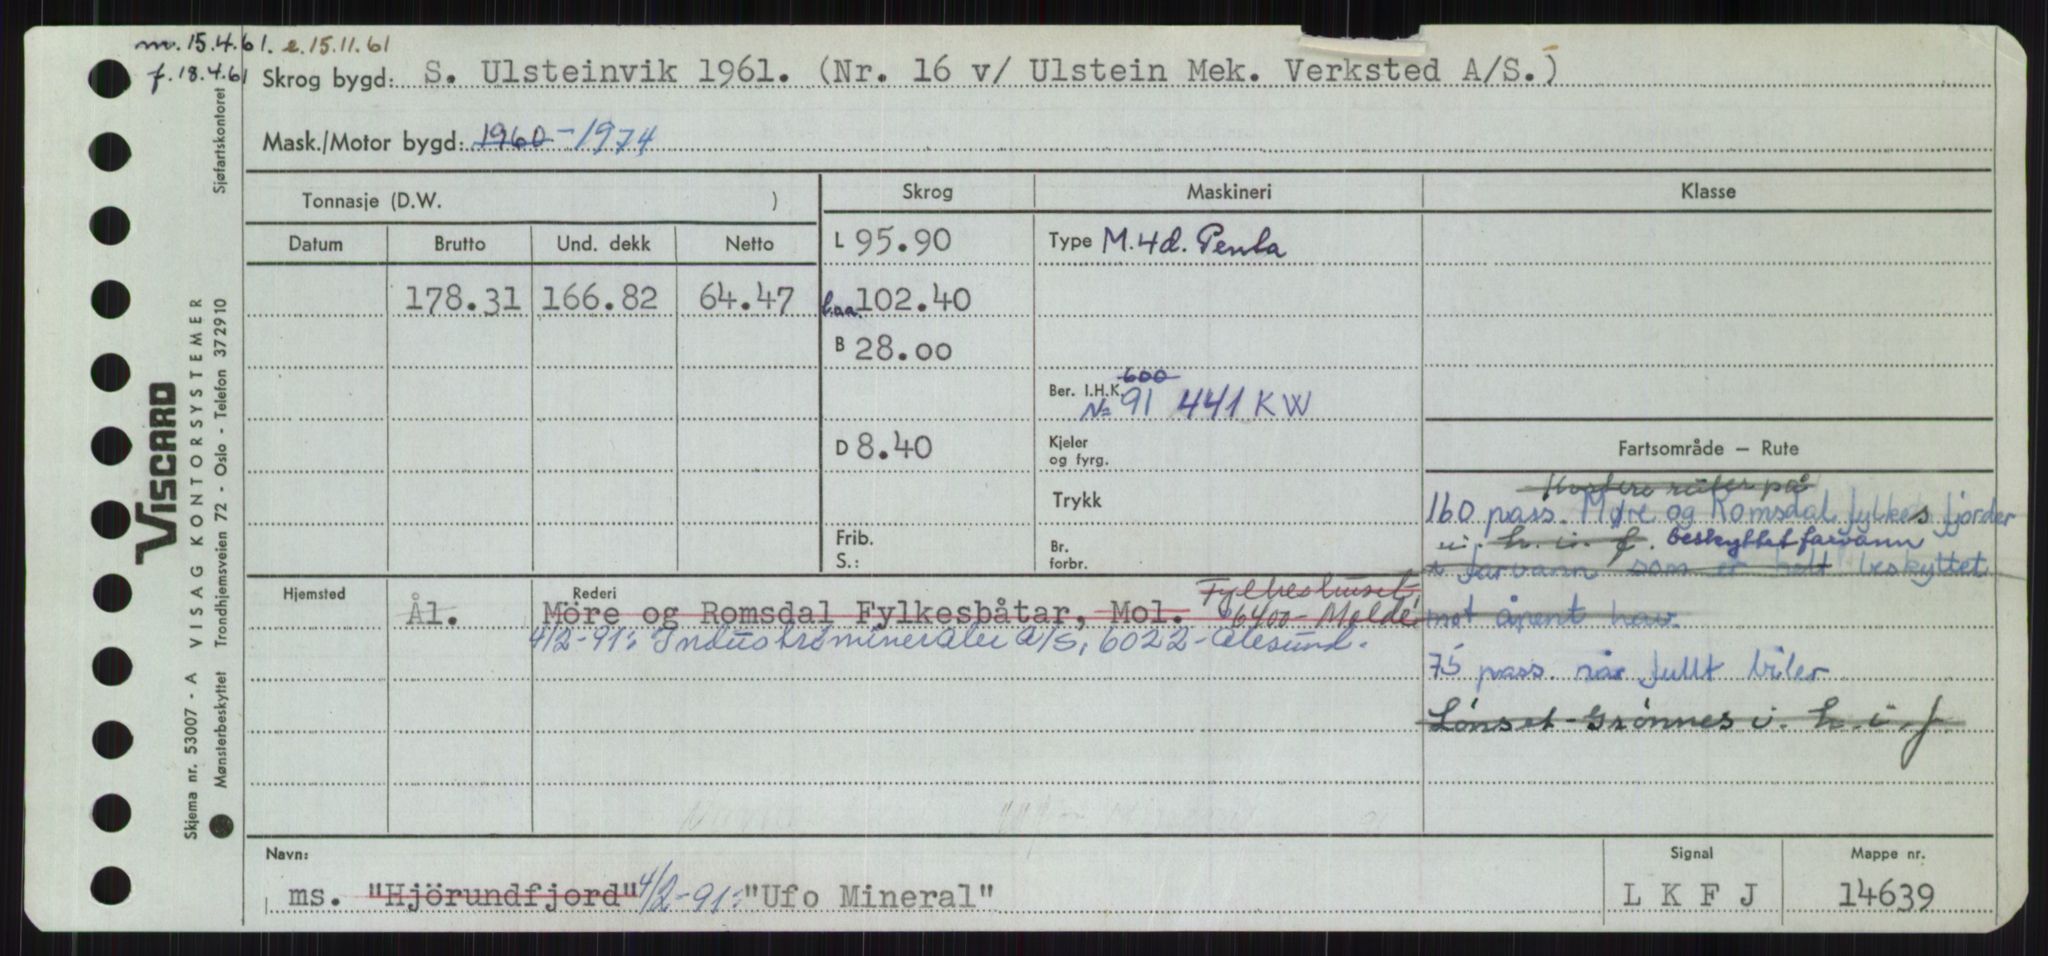 m. 15.4.61. e. 15.11.61
f. 18.4.61
Skrog bygd: S. Ulsteinvik 1961. (Nr. 16 v/ Ulstein Mek. Verksted A/S.)
Mask./Motor bygd: 1960 - 1974
Tonnasje (D.W. )
Skrog
Maskineri
Klasse
Datum
Brutto
Und. dekk
Netto
L 95.90
Type M.4d. Penta
178.31
166.82
64.47
l.aa. 102.40
B 28.00
600
Ber. I.H.K.
N= 91 441 KW
D 8.40
Kjeler
og fyrg.
Fartsområde — Rute
Trykk
rúter på
160 pass. Møre og Romsdal fylkes fjorder
Frib.
S.:
Br.
forbr.
i. h. i. f. beskyttet farvann
i farvann som er helt beskyttet
mot åpent hav.
75 pass. når fullt biler
Lönset-Grønnes i. h. i. f.
Hjemsted
Ål.
Rederi
Möre og Romsdal Fylkesbåtar, Mol.
Fylkeshuset
6400 - Molde
4/2-91: Industrimineraler A/S, 6022-Ålesund.
Navn:
ms. "Hjörundfjord" 4/2-91: "Ufo Mineral"
Signal
L K F J
Mappe nr.
14639
Sjøfartskontoret
VISCARD
VISAG KONTORSYSTEMER
Trondhjemsveien 72 - Oslo - Telefon 372910
Skjema nr. 53007 - A
Mønsterbeskyttet